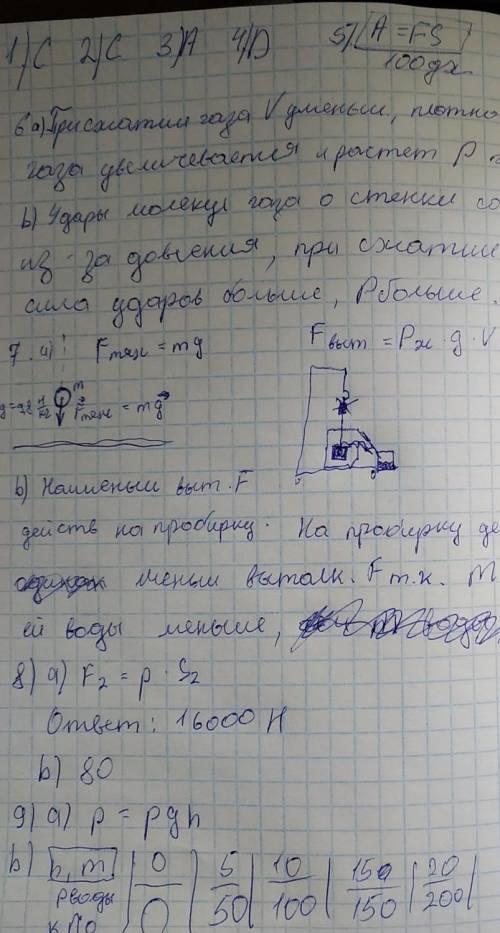 1) C 2) C 3) A 4) D 5) A = FS
100 дж
6 a) При сжатии газа V уменьш., плотно
газа увеличивается и растет P
b) Удары молекул газа о стенки со
из-за давления, при сжатии
сила ударов больше, P больше.
7. a) Fтяж = mg Fвыт = Pж · g · V
m
g=9,8 Н/кг Fтяж = mg
b) Наименьш выт. F
действ на пробирку. На пробирку де
меньш выталк. F т.к. m
ей воды меньше,
8) a) F2 = p · S2
Ответ: 16000 Н
b) 80
9) a) p = pgh
b) h, m | 0 | 5 | 10 | 150 | 20
Pводы кПа | 0 | 50 | 100 | 150 | 200